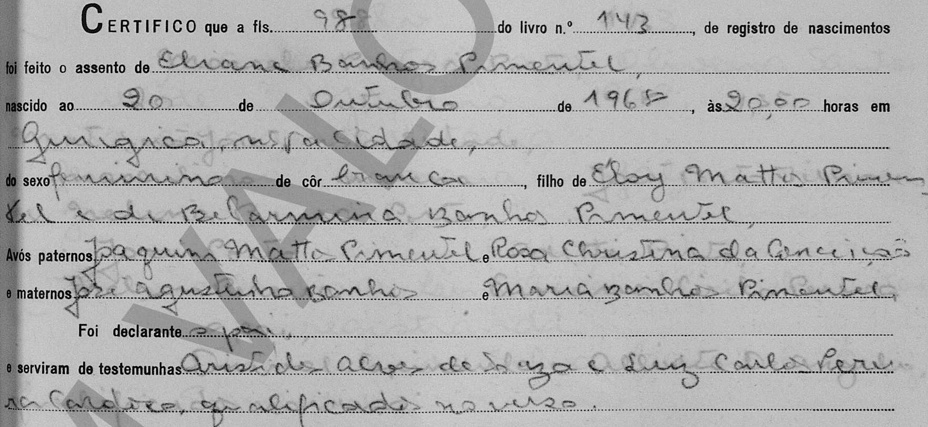 CERTIFICO que a fls. 98 do livro n.º 143, de registro de nascimentos
foi feito o assento de Eliane Banhos Pimentel,
nascido ao 20 de Outubro de 1965, às 20,00 horas em
nesta cidade,
do sexo feminino de côr branca, filho de Eloy Matto Pimen
tel e de Belarmina Banhos Pimentel
Avós paternos Joaquim Matto Pimentel e Rosa Christina da Conceição
e maternos José Agustinho Banhos e Maria Banhos Pimentel,
Foi declarante o pai,
e serviram de testemunhas Alves de Souza e Luiz Carlos Perei
ra Cardozo, qualificados no verso.
VALO